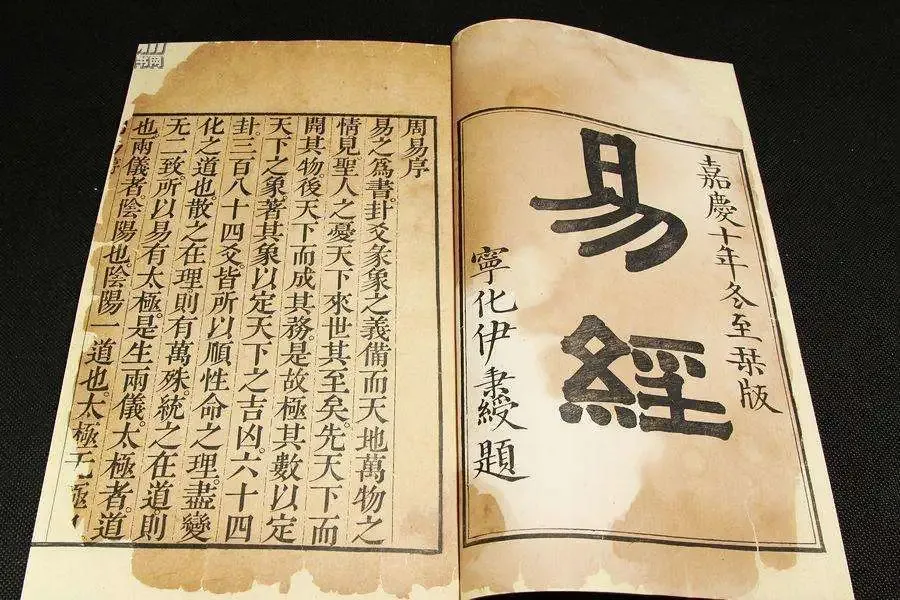 嘉慶十年冬至栞版
易經
寧化伊秉綬題
周易序
易之爲書。卦爻彖象之義備。而天地萬物之
情見。聖人之憂天下來世其至矣。先天下而
開其物。後天下而成其務。是故極其數以定
天下之象。著其象以定天下之吉凶。六十四
卦。三百八十四爻。皆所以順性命之理。盡變
化之道也。散之在理。則有萬殊。統之在道。則
无二致。所以易有太極。是生兩儀。太極者。道
也。兩儀者。陰陽也。陰陽一道也。太極无極
书网